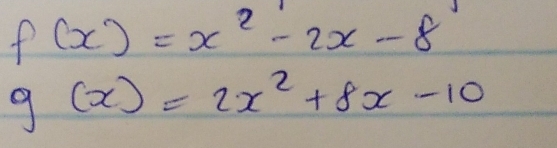 f(x) = x² - 2x - 8
g(x) = 2x² + 8x - 10